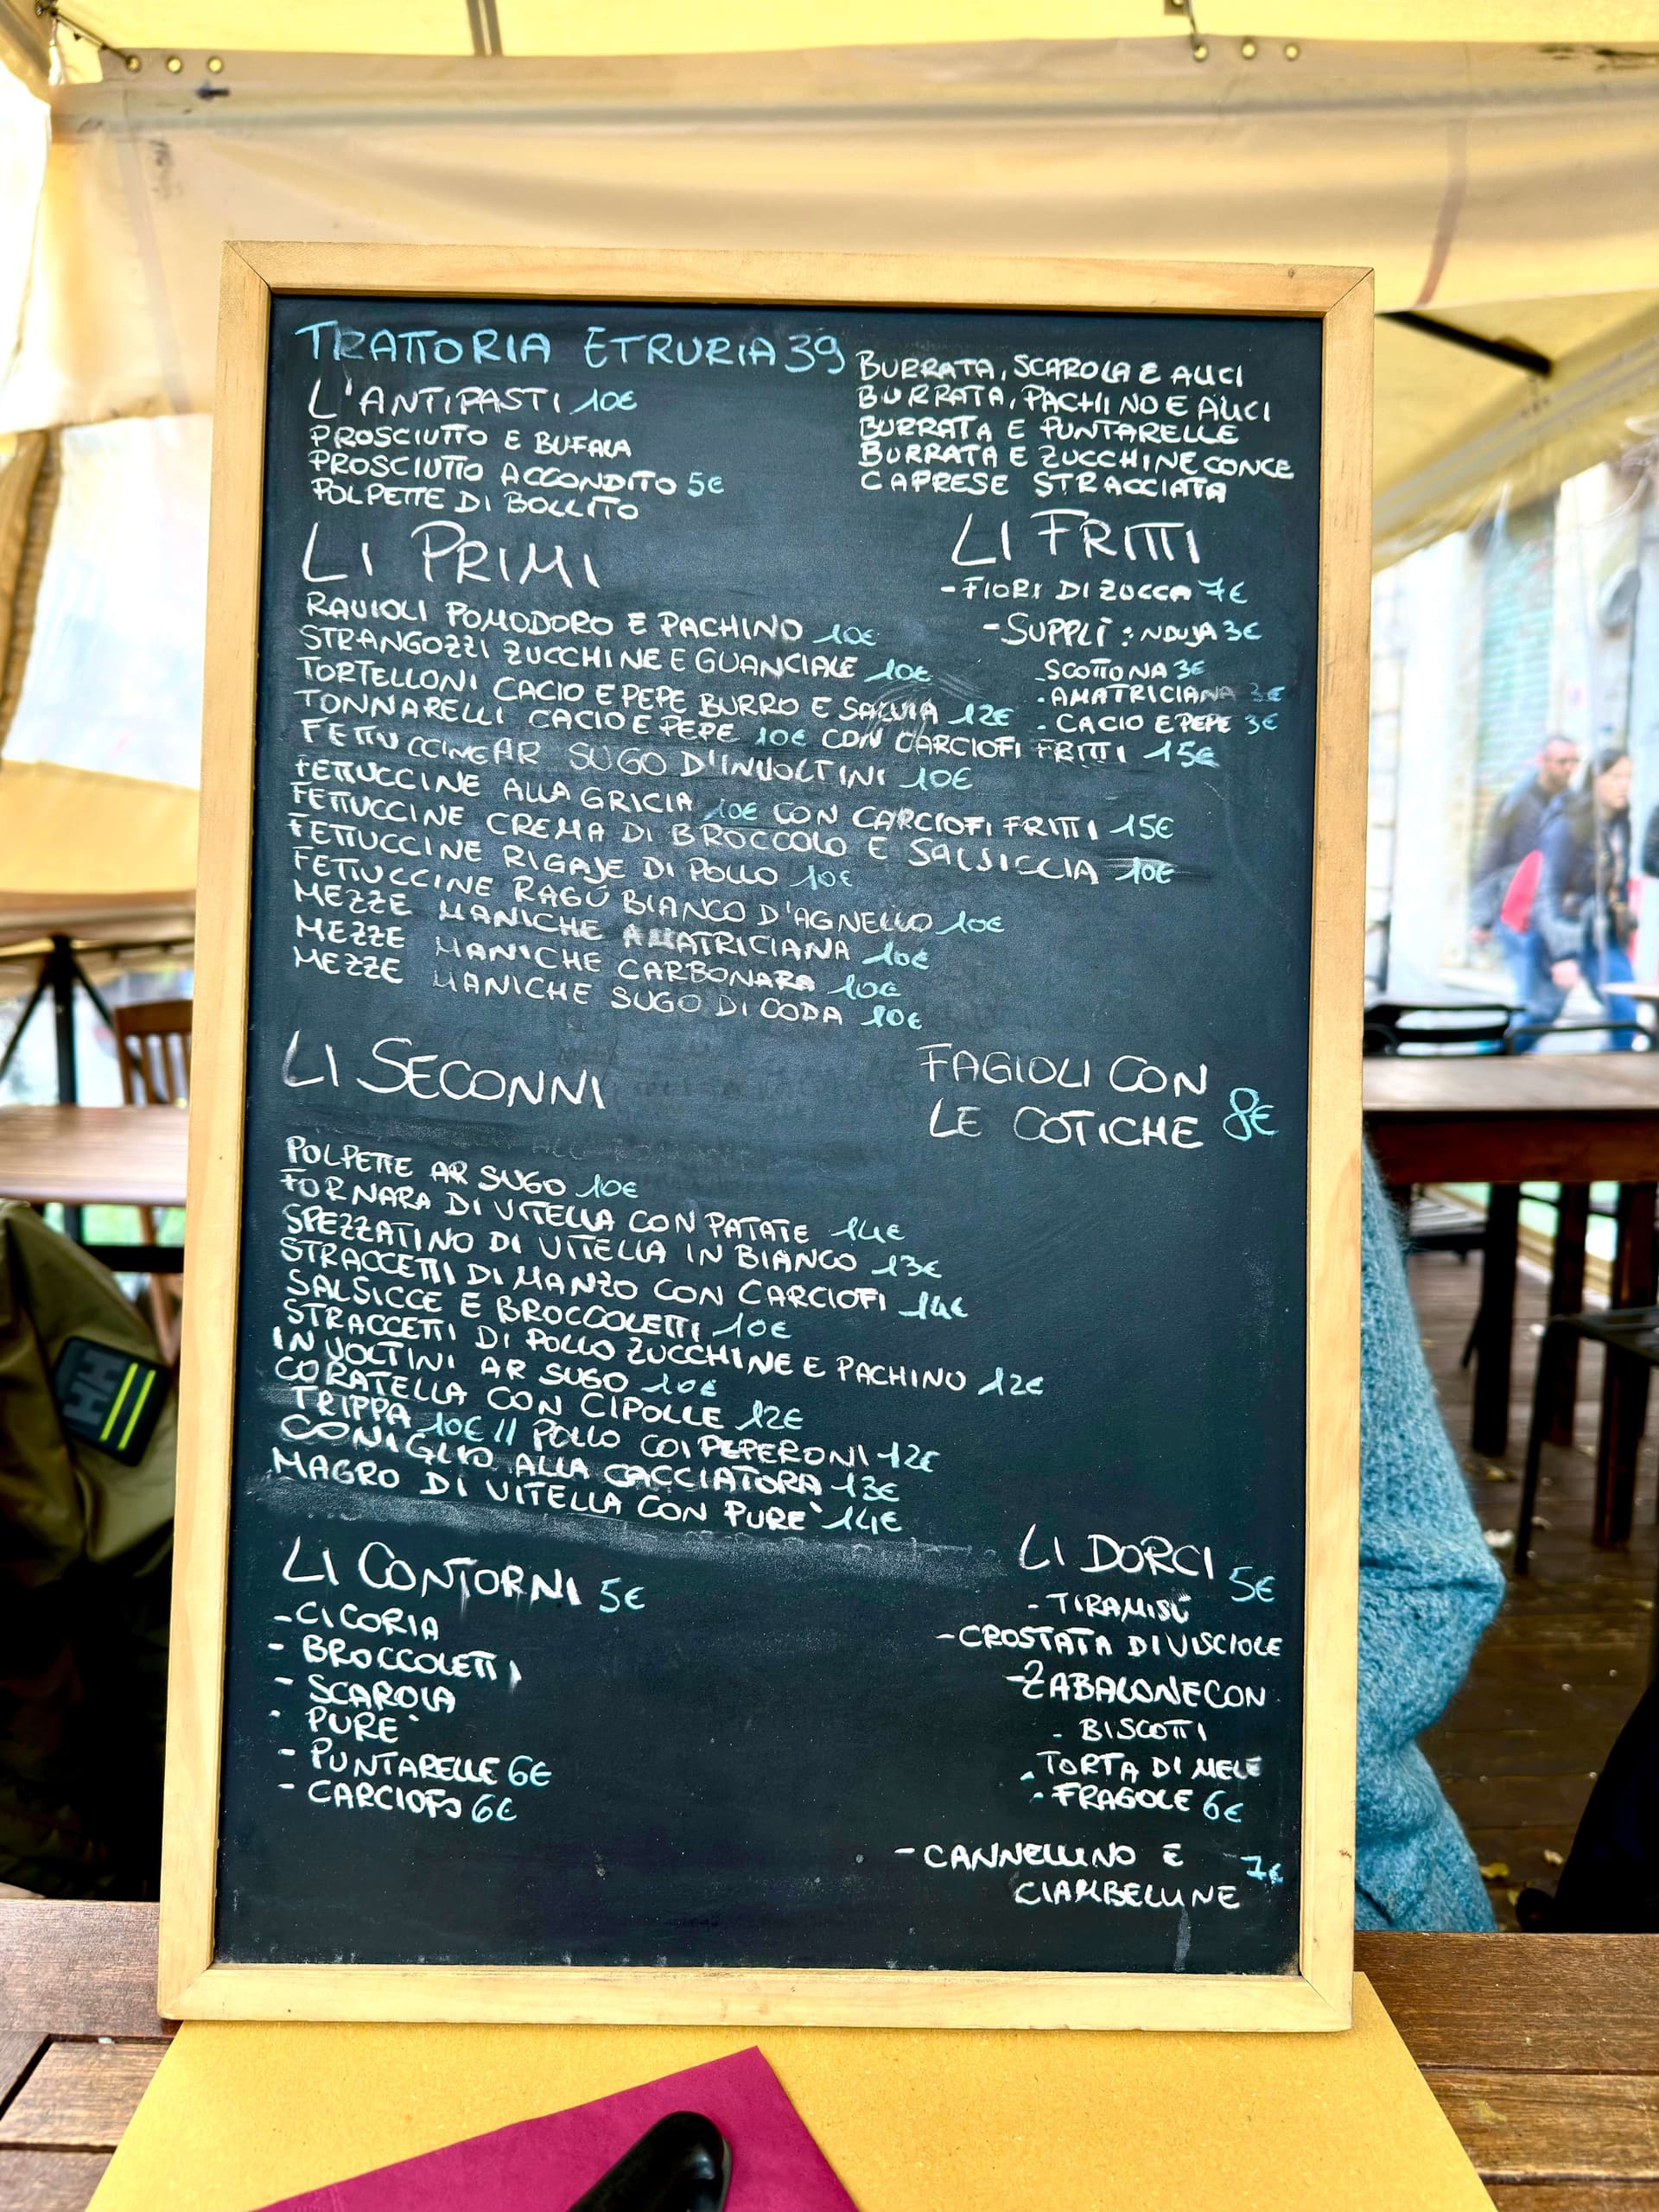 TRATTORIA ETRURIA 39
L'ANTIPASTI 10€
PROSCIUTTO E BUFALA
PROSCIUTTO ACCONDITO 5€
POLPETTE DI BOLLITO
BURRATA, SCAROLA E ALICI
BURRATA, PACHINO E ALICI
BURRATA E PUNTARELLE
BURRATA E ZUCCHINE CONCE
CAPRESE STRACCIATA
LI PRIMI
RAVIOLI POMODORO E PACHINO 10€
STRANGOZZI ZUCCHINE E GUANCIALE 10€
TORTELLONI CACIO E PEPE BURRO E SALVIA 12€
TONNARELLI CACIO E PEPE 10€ CON CARCIOFI FRITTI 15€
FETTUCCINE AR SUGO D'INVOLTINI 10€
FETTUCCINE ALLA GRICIA 10€ CON CARCIOFI FRITTI 15€
FETTUCCINE CREMA DI BROCCOLO E SALSICCIA 10€
FETTUCCINE RIGAJE DI POLLO 10€
FETTUCCINE RAGÚ BIANCO D'AGNELLO 10€
MEZZE MANICHE AMATRICIANA 10€
MEZZE MANICHE CARBONARA 10€
MEZZE MANICHE SUGO DI CODA 10€
LI FRITTI
- FIORI DI ZUCCA 7€
- SUPPLÌ : NDUJA 3€
- SCOTTONA 3€
- AMATRICIANA 3€
- CACIO E PEPE 3€
LI SECONNI
POLPETTE AR SUGO 10€
FORNARA DI VITELLA CON PATATE 14€
SPEZZATINO DI VITELLA IN BIANCO 13€
STRACCETTI DI MANZO CON CARCIOFI 14€
SALSICCE E BROCCOLETTI 10€
STRACCETTI DI POLLO ZUCCHINE E PACHINO 12€
INVOLTINI AR SUGO 10€
CORATELLA CON CIPOLLE 12€
TRIPPA 10€ // POLLO COI PEPERONI 12€
CONIGLIO ALLA CACCIATORA 13€
MAGRO DI VITELLA CON PURE` 14€
FAGIOLI CON
LE COTICHE 8€
LI CONTORNI 5€
- CICORIA
- BROCCOLETTI
- SCAROLA
- PURE`
- PUNTARELLE 6€
- CARCIOFO 6€
LI DORCI 5€
- TIRAMISÚ
- CROSTATA DI VISCIOLE
- ZABALONE CON
- BISCOTTI
- TORTA DI MELE
- FRAGOLE 6€
- CANNELLINO E 7€
CIAMBELLINE
HH